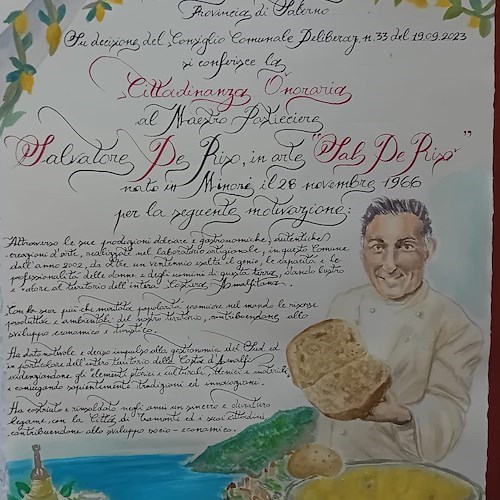 Provincia di Salerno
Su decisione del Consiglio Comunale Deliberaz. n. 33 del 19.09.2023
si conferisce la
Cittadinanza Onoraria
al Maestro Pasticciere
Salvatore De Riso, in arte "Sal De Riso"
nato in Minori il 28 novembre 1966
per la seguente motivazione:
Attraverso le sue produzioni dolciarie e gastronomiche, autentiche
creazioni d'arte, realizzate nel laboratorio artigianale, in questo Comune
dall'anno 2002, da oltre un ventennio esalta il genio, le capacità e le
professionalità delle donne e degli uomini di questa terra, dando lustro
e valore al territorio dell'intera Costiera Amalfitana.
Con la sua più che meritata popolarità promuove nel mondo le risorse
produttive e ambientali del nostro territorio, contribuendone allo
sviluppo economico e turistico.
Ha dato notevole e deciso impulso alla gastronomia del Sud ed
in particolare dell'intero territorio della Costa d'Amalfi
evidenziandone gli elementi storici e culturali, materici e materiali,
e coniugando sapientemente tradizioni ed innovazioni.
Ha costruito e rinsaldato negli anni un sincero e duraturo
legame con la Città di Tramonti ed i suoi cittadini
contribuendone allo sviluppo socio-economico.